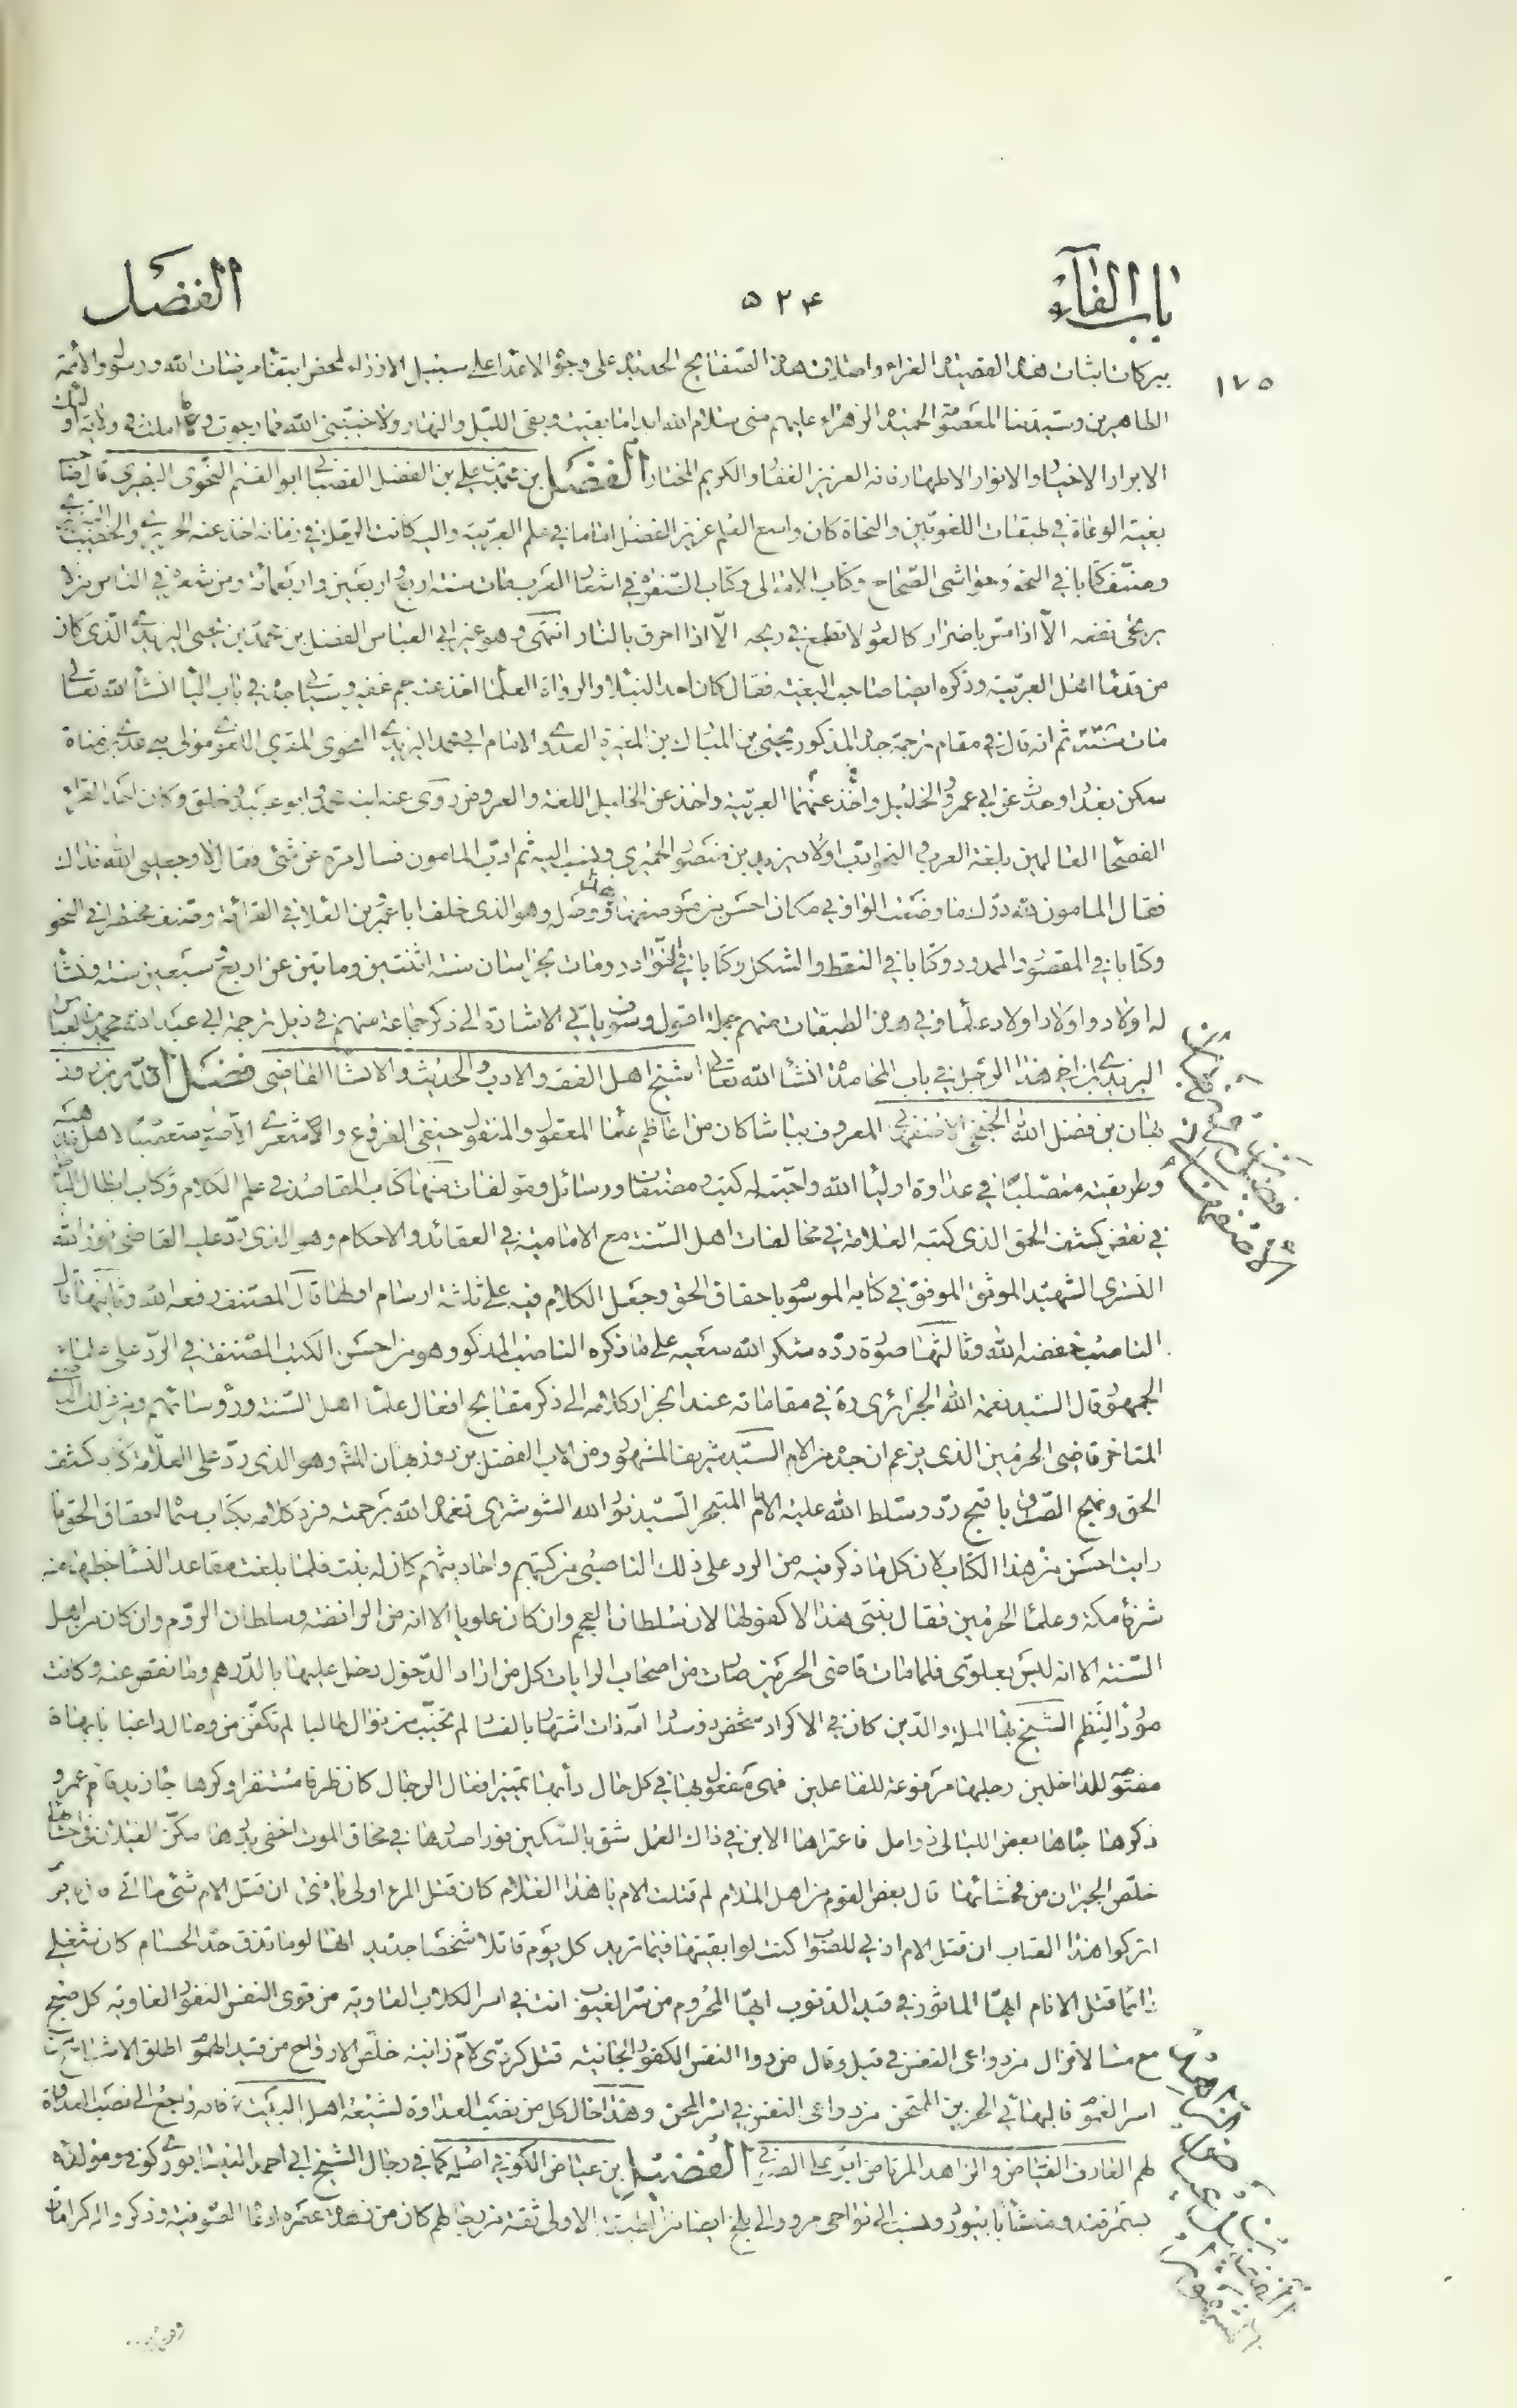 باب الفاء
٥٢٤
الفضل
١٧٥
ببركات اثبات هذه القصيدة الغراء واضافة هذه الصفايح الحديد على وجه الاعداء على سبيل الازراء لمحض ابتغاء مرضات الله ورسوله والائمة
الطاهرين وسيدتنا المعصومة الحميدة الزهراء عليهم منى سلام الله ابدا ما بقيت وبقى الليل والنهار ولا خيبنى الله فيما رجوت وما املت فى ولاية اولئك
الابرار الاخيار والانوار الاطهار فانه العزيز الغفار والكريم المختار الفضل بن محمد بن على بن الفضل القصبانى ابو القسم النحوى البصرى قال صاحب
بغية الوعاة فى طبقات اللغويين والنحاة كان واسع العلم غزير الفضل اماما فى علم العربية واليه كانت الرحلة فى زمانه اخذ عنه الحريرى والخطيب التبريزى
وصنف كتابا فى النحو وحواشى الصحاح وكتاب الامالى وكتاب الصفوة فى اشعار العرب مات سنة اربع واربعين واربعمائة ومن شعره فى الناس من لا
يرتجى نفعه الا اذا مس باضرار كالعود لا تطمع فى ريحه الا اذا احرق بالنار انتهى وهو غير ابى العباس الفضل بن محمد بن يحيى اليزيدى الذى كان
من قدماء اهل العربية وذكره ايضا صاحب البغية فقال كان احد النبلاء والرواة العلماء اخذ عنه جم غفير وسياتى جده فى باب الياء انشاء الله تعالى
مات ثم انه قال فى مقام ترجمة جده المذكور يحيى بن المبارك بن المغيرة العدوى الامام ابو محمد اليزيدى النحوى المقرى اللغوى مولى بنى عدى بن مناة
سكن بغداد وحدث عن ابى عمرو والخليل واخذ عنهما العربية واخذ عن الخليل اللغة والعروض روى عنه ابنه محمد وابو عبيد وخلق وكان احد القراء
الفصحاء العالمين بلغة العرب والنحو ادب اولاد يزيد بن منصور الحميرى ونسب اليه ثم ادب المامون فسال مرة عن شئ فقال لا وجعلنى الله فداك
فقال المامون لله درك ما وضعت الواو فى مكان احسن من موضعها ووصله وهو الذى خلف ابا عمرو بن العلاء فى القرائة وصنف مختصرا فى النحو
وكتابا فى المقصور والممدود وكتابا فى النقط والشكل وكتابا فى النوادر ومات بخراسان سنة اثنتين وماتين عن اربع وسبعين سنة ونشا
له اولاد واولاد اولاد علماء وفى هذه الطبقات منهم جملة اقول وسوف ياتى الاشارة الى ذكر جماعة منهم فى ذيل ترجمة ابى عبد الله محمد بن العباس
اليزيدى ابن اخى هذا الرجل فى باب المحامدة انشاء الله تعالى الشيخ اهل الفقه والادب والحديث والانشاء القاضى فضل الله بن روز
بهان بن فضل الله الخنجى الاصفهانى المعروف بباشا كان من اعاظم علماء المعقول والمنقول حنفى الفروع والاشعرى الاصول متعصبا لاهل مذهبه
وطريقته متصلبا فى عداوة اولياء الله واحبته له كتب ومصنفات ورسائل ومؤلفات منها كتاب المقاصد فى علم الكلام وكتاب ابطال الباطل
فى نقض كشف الحق الذى كتبه العلامة فى مخالفات اهل السنة مع الامامية فى العقائد والاحكام وهو الذى رد عليه القاضى نور الله
التسترى الشهيد الموثق الموفق فى كتابه الموسوم باحقاق الحق وجعل الكلام فيه على ثلثة ارسام اولها قال المصنف رفعه الله وثانيها قال
الناصب خفضه الله وثالثها صورة رده شكر الله سعيه على ما ذكره الناصب المذكور وهو من احسن الكتب المصنفة فى الرد على علماء
الجمهور قال السيد نعمة الله الجزائرى ره فى مقاماته عند انجرار كلامه الى ذكر مقابح افعال علماء اهل السنة ورؤسائهم
المتاخر قاضى الحرمين الذى يزعم ان جده من الام السيد شريف المشهور ومن الاب الفضل بن روزبهان وهو الذى رد على العلامة كتاب كشف
الحق ونهج الصدق باقبح رد وسلط الله عليه الامام المتبحر السيد نور الله الشوشترى تغمده الله برحمته فرد كلامه بكتاب سماه احقاق الحق ما
رايت احسن من هذا الكتاب لان كل ما ذكر فيه من الرد على ذلك الناصبى من كتبهم واحاديثهم كان له بنت فلما بلغت مقاعد النساء خطبها منه
شرفاء مكة وعلماء الحرمين فقال بنتى هذه لا كفو لها لان سلطان العجم وان كان علويا الا انه من الرافضة وسلطان الروم وان كان من اهل
السنة الا انه ليس بعلوى فلما مات قاضى الحرمين صارت من اصحاب الرايات كل من اراد الدخول دخل عليها بالدرهم وما نقص عنه وكانت
مورد النظم الشيخ بهاء الملة والدين كان فى الاكراد شخص ذو سداد امه ذات اشتهار بالفساد لم تخيب من نوال طالبا لم تكفن من وصال راغبا بابها
مفتوح للداخلين رجلها مرفوعة للفاعلين فهى مفعول بها فى كل حال دأبها تمييز افعال الرجال كان ظرفا مستقرا وكرها جاء زيد قام عمرو
ذكرها جاءها بعض الليالى ذو امل فاعتراها الابن فى ذاك العمل شق بالسكين فورا صدرها فى محاق الموت اخفى بدرها مكن الغيلان فى احشائها
خلص الجيران من فحشائها قال بعض القوم من اهل الملام لم قتلت الام يا هذا الغلام كان قتل المرء اولى يا فتى ان قتل الام شئ ما اتى قال يا قوم
اتركوا هذا العتاب ان قتل الام ادنى للصواب كنت لو ابقيتها فيما تريد كل يوم قاتلا شخصا جديد انها لو ما تذق حد الحسام كان شغلى
دائما قتل الانام ايها الماسور فى قيد الذنوب ايها المحروم من سر الغيوب انت فى اسر الكلاب العاوية من قوى النفس النفور العاوية كل صبح
مع مسا لا تزال من دواعى النفس فى قيل وقال من دوا النفس الكفور الجانية قتل كردى لام زانية خلص الارواح من قيد الهموم اطلق الاشباح من
اسر الغموم فالبهائى الحزين الممتحن من دواعى النفس فى اسر المحن وهذا حال كل من نصب العداوة لشيعة اهل البيت فانه راجع الى نصب العداوة
لهم العارف الفياض والزاهد المرتاض ابو على الصوفى الفضيل بن عياض الكوفى اصله كما فى رجال الشيخ ابى احمد
بسمرقند ومنشأه بابيورد ونسب الى نواحى مرو والى بلخ ايضا الاولى ثقة من رجالهم كان من زهاد عصره الصوفية وذكروا له كرامات